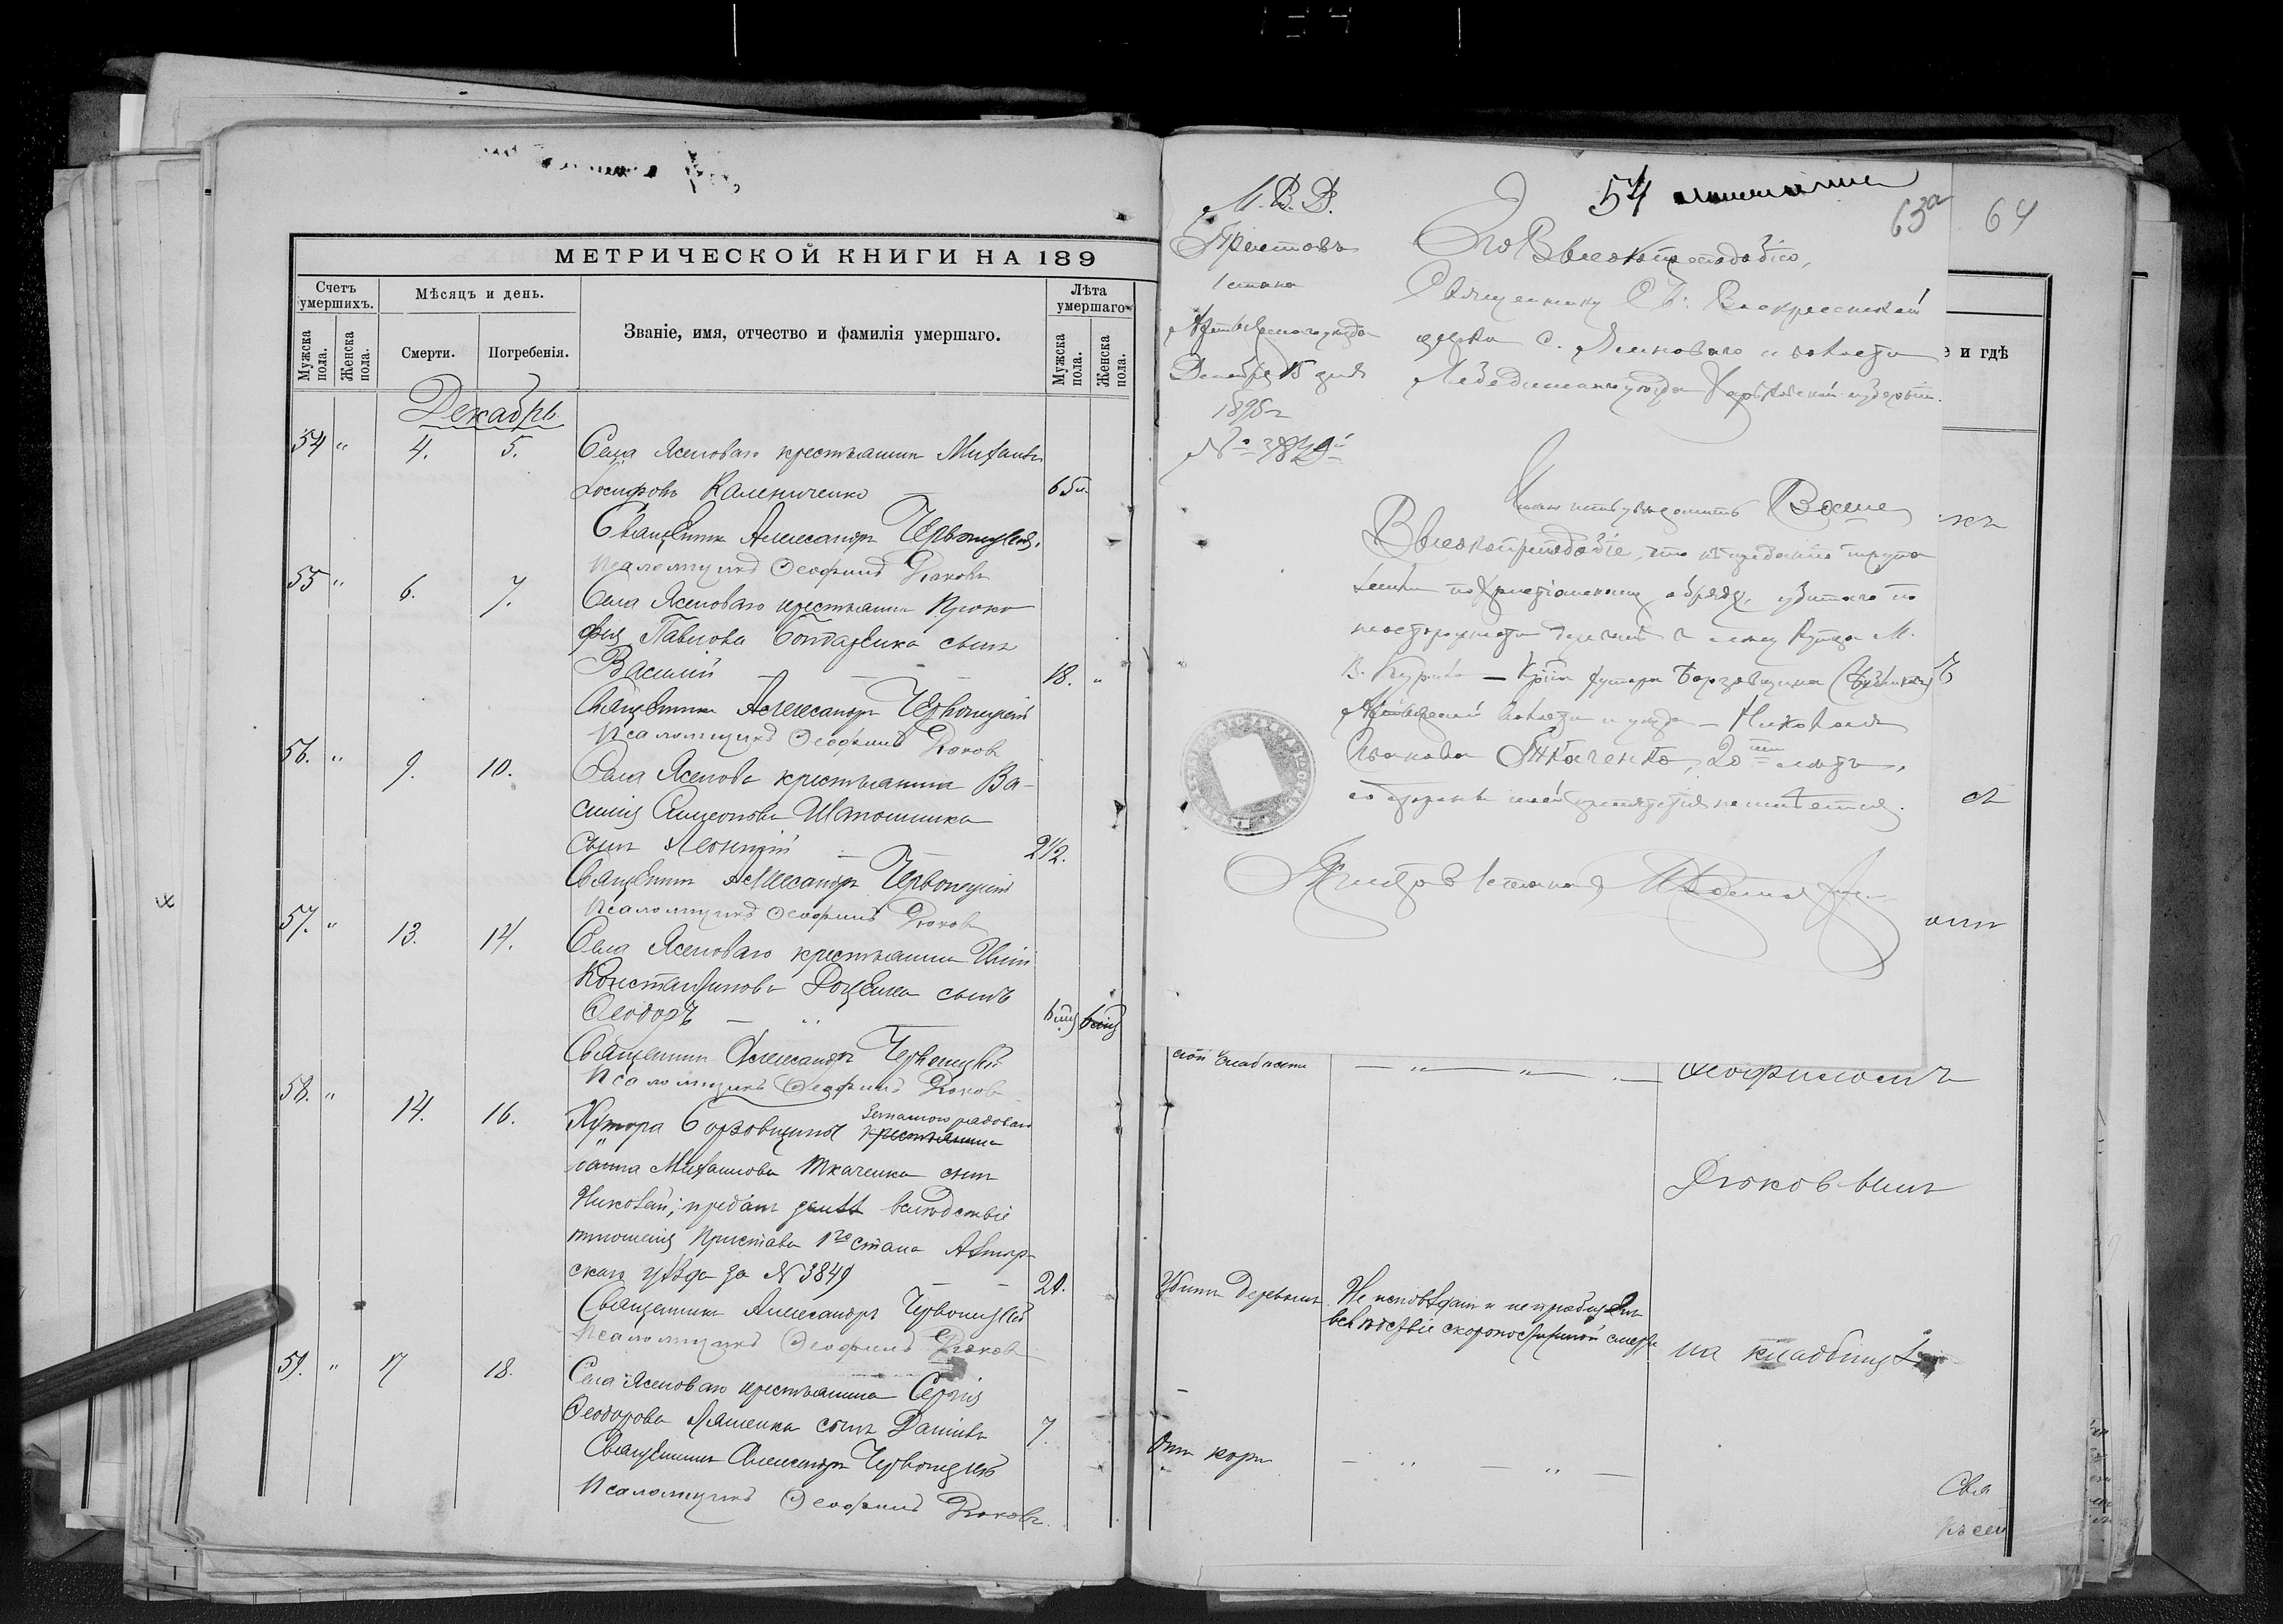 МЕТРИЧЕСКОЙ КНИГИ НА 189
Счетъ умершихъ.
Мужска пола.
Женска пола.
Мѣсяцъ и день.
Смерти.
Погребенія.
Званіе, имя, отчество и фамилія умершаго.
Лѣта умершаго
Мужска пола.
Женска пола.
Декабрь
54 " 4. 5. Села Ясеноваго крестьянин Михаилъ
Іосифовъ Калениченко 65 л.
Священник Александръ Червонецкій.
Псаломщикъ Ѳеофилъ Дюковъ
55 " 6. 7. Села Ясеноваго крестьянина Проко
фія Павлова Бондаренка сынъ
Василій 18. "
Священникъ Александръ Червонецкій
Псаломщикъ Ѳеофилъ Дюковъ
56. " 9. 10. Села Ясенова крестьянина Ва-
силія Симеонова Шапошника
сынъ Леонтій 2 1/2.
Священникъ Александръ Червонецкій
Псаломщикъ Ѳеофилъ Дюковъ
57. " 13. 14. Села Ясеноваго крестьянина Иліи
Константинова Доценка сынъ
Ѳеодоръ
Священник Александръ Червонецкій
Псаломщикъ Ѳеофилъ Дюковъ
58. " 14. 16. Хутора Борзовщины крестьянина
Михаилова Ткаченка сынъ
Николай; преданъ землѣ вслѣдствіе
отношенія Пристава 1го стана Ахтыр-
скаго уѣзда за N 3849 20.
Священник Александръ Червонецкій
Псаломщикъ Ѳеофилъ Дюковъ
59. " 17 18. Села Ясеноваго крестьянина Сергія
Ѳеодорова Ляшенка сынъ Даніилъ 7.
Священникъ Александръ Червонецкій
Псаломщикъ Ѳеофилъ Дюковъ.
54
63а
64
М. В. Д.
Приставъ
1 стана
Ахтырскаго уѣзда
Декабря 15 дня
1895 г
№ 3849
Его Высокопреподобію,
Священнику Св. Воскресенской
церкви с. Ясеноваго
Лебединскаго уѣзда Харьковской губерніи.
Имѣю честь увѣдомить Ваше
Высокопреподобіе, что къ преданію трупа
землѣ по христіанскому обряду, убитаго по
неосторожности
хутора Борзовщина
Ахтырской волости и уѣзда - Николая
Иванова Ткаченко, 20 лѣтъ,
со стороны моей препятствія не имѣется.
Приставъ 1 стана
е и гдѣ
слабости
Ѳеофиломъ
Дюковымъ
Убитъ деревомъ
Не исповѣданъ и не пріобщенъ
вслѣдствіе скоропостижной смерти
на кладбищѣ
Отъ кори
Свя